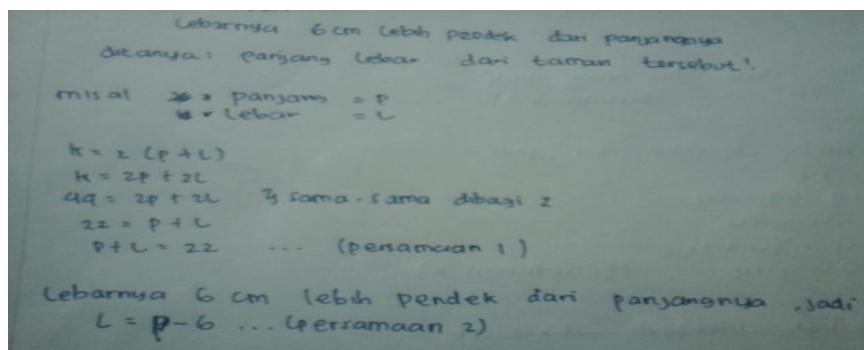 Lebarnya 6 cm lebih pendek dari panjangnya
ditanya : panjang lebar dari taman tersebut !
misal panjang = P
lebar = L
k = 2 (P + L)
k = 2P + 2L
44 = 2P + 2L } sama-sama dibagi 2
22 = P + L
P + L = 22 ... (persamaan 1)
Lebarnya 6 cm lebih pendek dari panjangnya . jadi
L = P - 6 ... (persamaan 2)